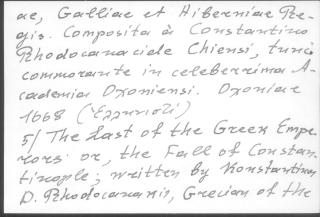 ae, Galliae et Hiberniae Re-
gis. Composita à Constantino
Rhodocanacide Chiensi, tunc
commorante in celeberrima A-
cademia Oxoniensi. Oxoniae
1668 (Ἑλληνιστί)
5/ The Last of the Green Empe-
rors: or, the Fall of Constan-
tinople; written by Konstantinus
D. Rhodocanakis, Grecian of the